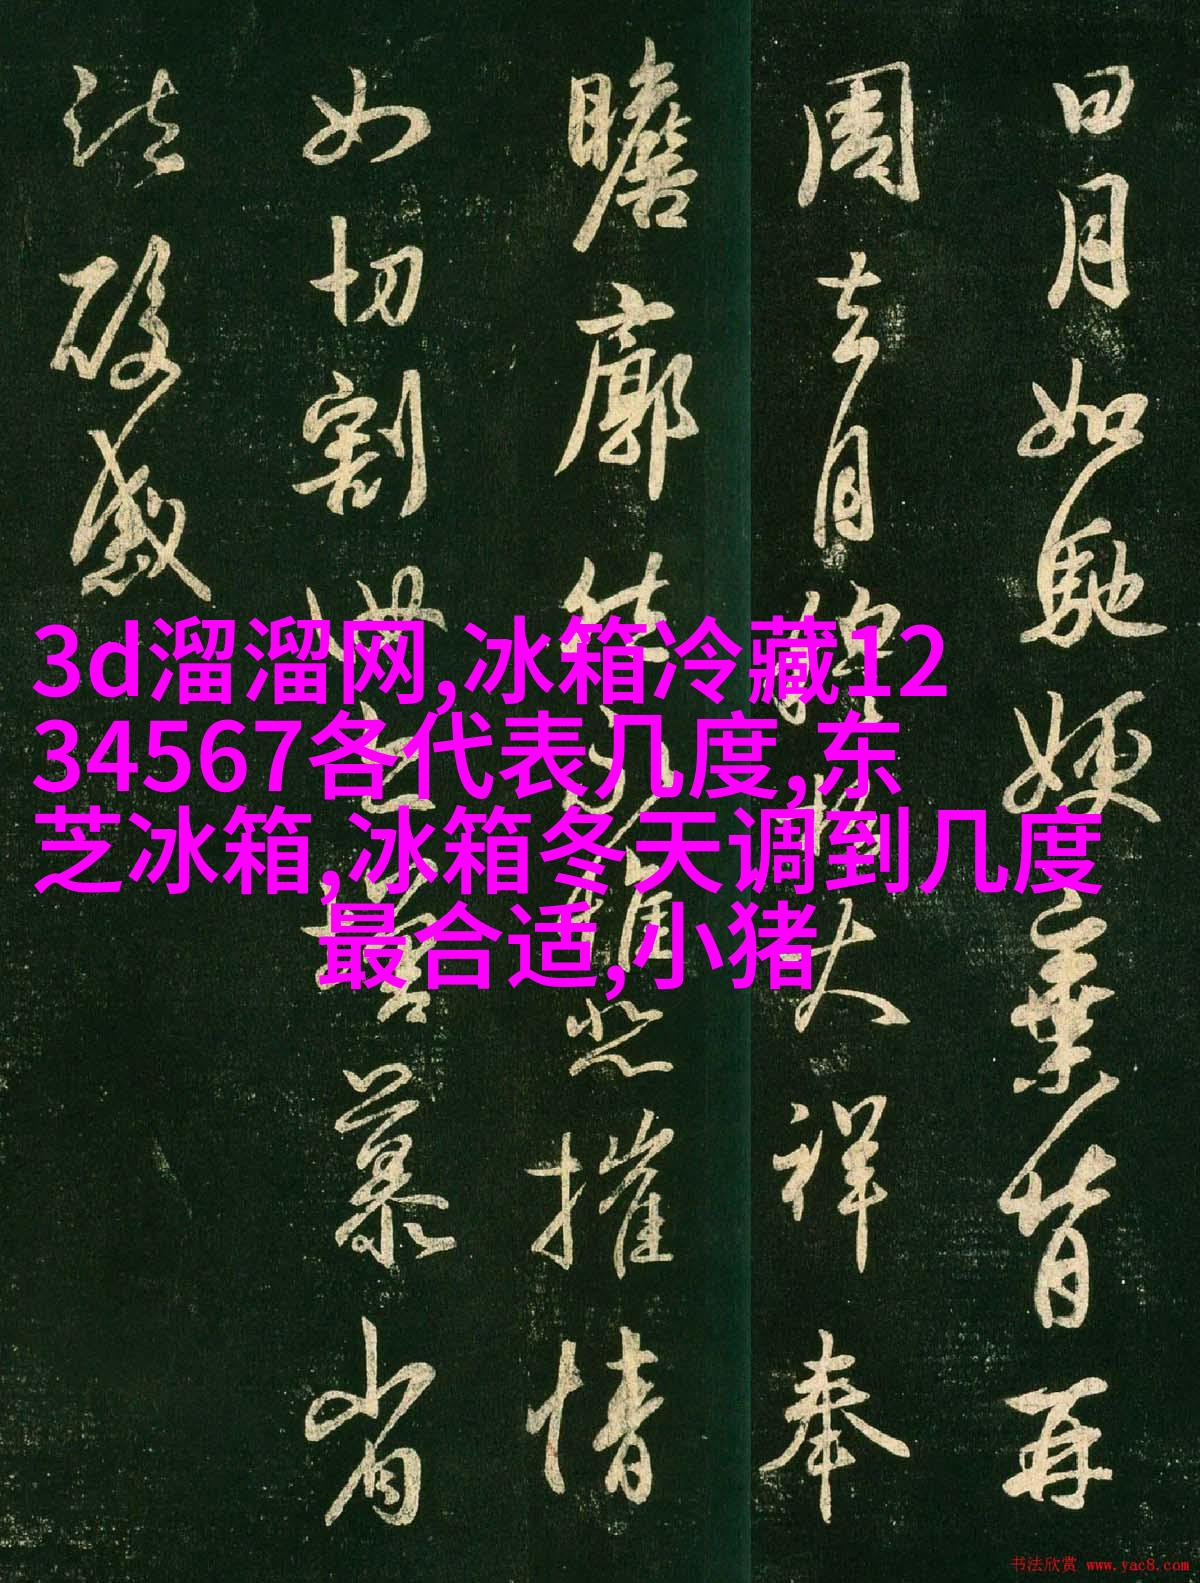 日月如馳嫂棄背再
周去月穆松大祥奉
瞻廓然永惟悲摧情
如切割慕省
酸感
3d溜溜网,冰箱冷藏12
34567各代表几度,东
芝冰箱,冰箱冬天调到几度
最合适,小猪
书法欣赏 www.yac8.com